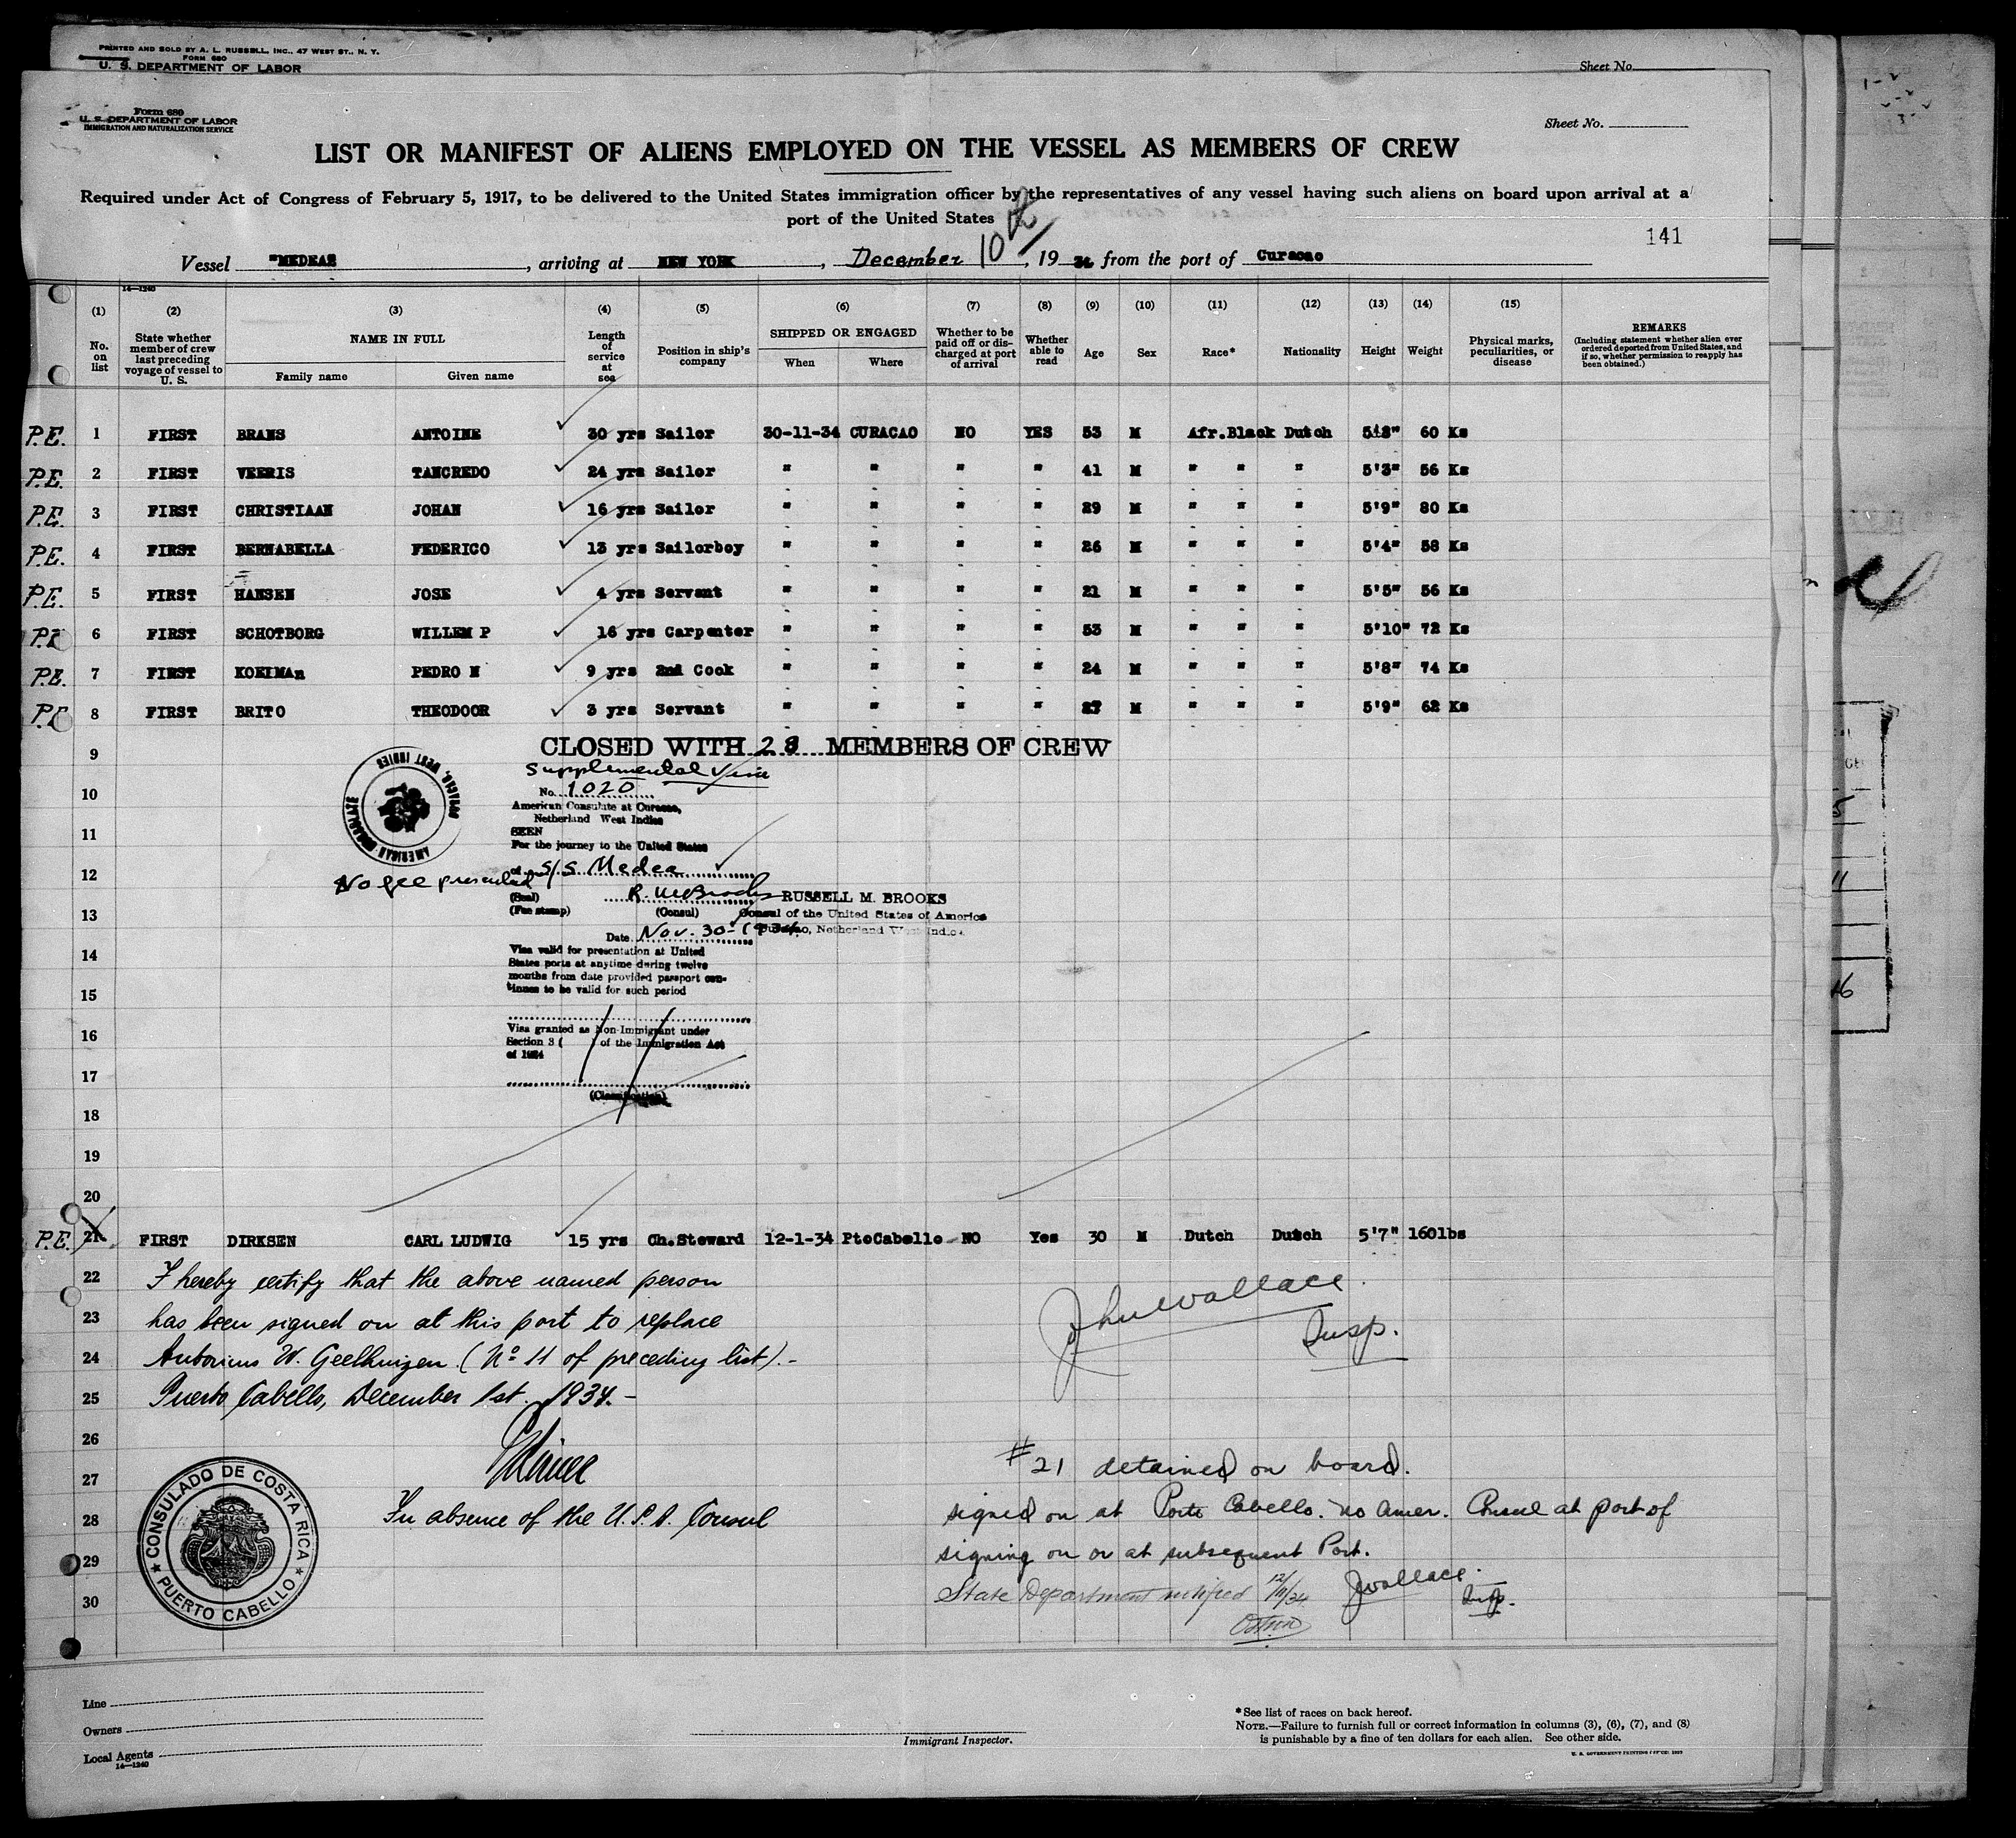 PRINTED AND SOLD BY A. L. RUSSELL, INC., 47 WEST ST., N. Y.
FORM 680
U. S. DEPARTMENT OF LABOR
Sheet No.
Form 680
U. S. DEPARTMENT OF LABOR
IMMIGRATION AND NATURALIZATION SERVICE
Sheet No.
LIST OR MANIFEST OF ALIENS EMPLOYED ON THE VESSEL AS MEMBERS OF CREW
Required under Act of Congress of February 5, 1917, to be delivered to the United States immigration officer by the representatives of any vessel having such aliens on board upon arrival at a
port of the United States
141
Vessel "MEDEA", arriving at NEW YORK, December 10th, 1934 from the port of Curacao
14—1240
(1) (2) (3) (4) (5) (6) (7) (8) (9) (10) (11) (12) (13) (14) (15)
No. on list State whether member of crew last preceding voyage of vessel to U. S. NAME IN FULL Family name Given name Length of service at sea Position in ship's company SHIPPED OR ENGAGED When Where Whether to be paid off or discharged at port of arrival Whether able to read Age Sex Race* Nationality Height Weight Physical marks, peculiarities, or disease REMARKS (Including statement whether alien ever ordered deported from United States, and if so, whether permission to reapply has been obtained.)
P.E. 1 FIRST BRANS ANTOINE 30 yrs Sailor 30-11-34 CURACAO NO YES 53 M Afr.Black Dutch 60 Ks
P.E. 2 FIRST VEERIS TANCREDO 24 yrs Sailor " " " " 41 M " " " 5'3" 56 Ks
P.E. 3 FIRST CHRISTIAAN JOHAN 16 yrs Sailor " " " " 29 M " " " 5'9" 80 Ks
P.E. 4 FIRST BERNABELLA FEDERICO 13 yrs Sailorboy " " " " 26 M " " " 5'4" 58 Ks
P.E. 5 FIRST HANSEN JOSE 4 yrs Servant " " " " 21 M " " " 5'5" 56 Ks
P.E. 6 FIRST SCHOTBORG WILLEM P 16 yrs Carpenter " " " " 53 M " " " 5'10" 72 Ks
P.E. 7 FIRST KOEIMAn PEDRO N 9 yrs 2nd Cook " " " " 24 M " " " 5'8" 74 Ks
P.E. 8 FIRST BRITO THEODOOR 3 yrs Servant " " " " 27 M " " " 5'9" 62 Ks
9 CLOSED WITH 28 MEMBERS OF CREW
Supplemental Visa
10 No. 1020
American Consulate at Curacao,
Netherland West Indies
AMERICAN CONSULATE CURACAO, WEST INDIES
11 SEEN
For the journey to the United States
12 of S/S Medea
No fee presented
(Seal) R. M. Brooks RUSSELL M. BROOKS
13 (Fee stamp) (Consul) Consul of the United States of America
Date Nov. 30-1934 Curacao, Netherland West Indies
14 Visa valid for presentation at United
States ports at anytime during twelve
months from date provided passport con-
15 tinues to be valid for such period
16 Visa granted as Non-Immigrant under
Section 3 ( ) of the Immigration Act
of 1924
17
(Classification)
18
19
20
P.E. 21 FIRST DIRKSEN CARL LUDWIG 15 yrs Ch.Steward 12-1-34 PtoCabello NO Yes 30 M Dutch Dutch 5'7" 160lbs
22 I hereby certify that the above named person
23 has been signed on at this port to replace
24 Antonius W. Geelhuizen (No 11 of preceding list).-
25 Puerto Cabello, December 1st. 1934.-
John Wallace
Insp.
26
27
28 In absence of the U.S.A. Consul
29
30
CONSULADO DE COSTA RICA
PUERTO CABELLO
#21 detained on board.
signed on at Porto Cabello. no Amer. Consul at port of
signing on or at subsequent Port.
State Department notified 12/11/34 J Wallace.
Insp.
Line
Owners
Local Agents
14—1240
Immigrant Inspector.
*See list of races on back hereof.
NOTE.—Failure to furnish full or correct information in columns (3), (6), (7), and (8)
is punishable by a fine of ten dollars for each alien. See other side.
U. S. GOVERNMENT PRINTING OFFICE: 1933